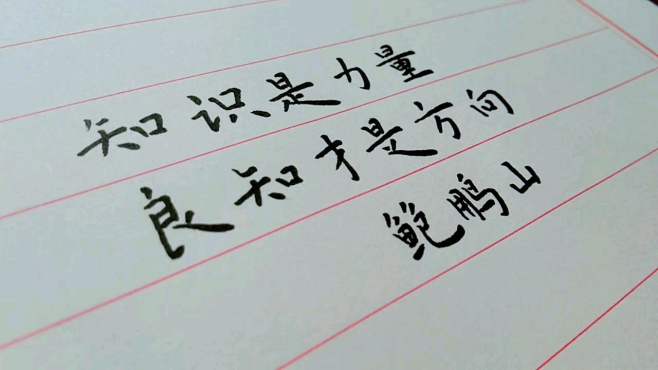 知识是力量
良知才是方向
鲍鹏山